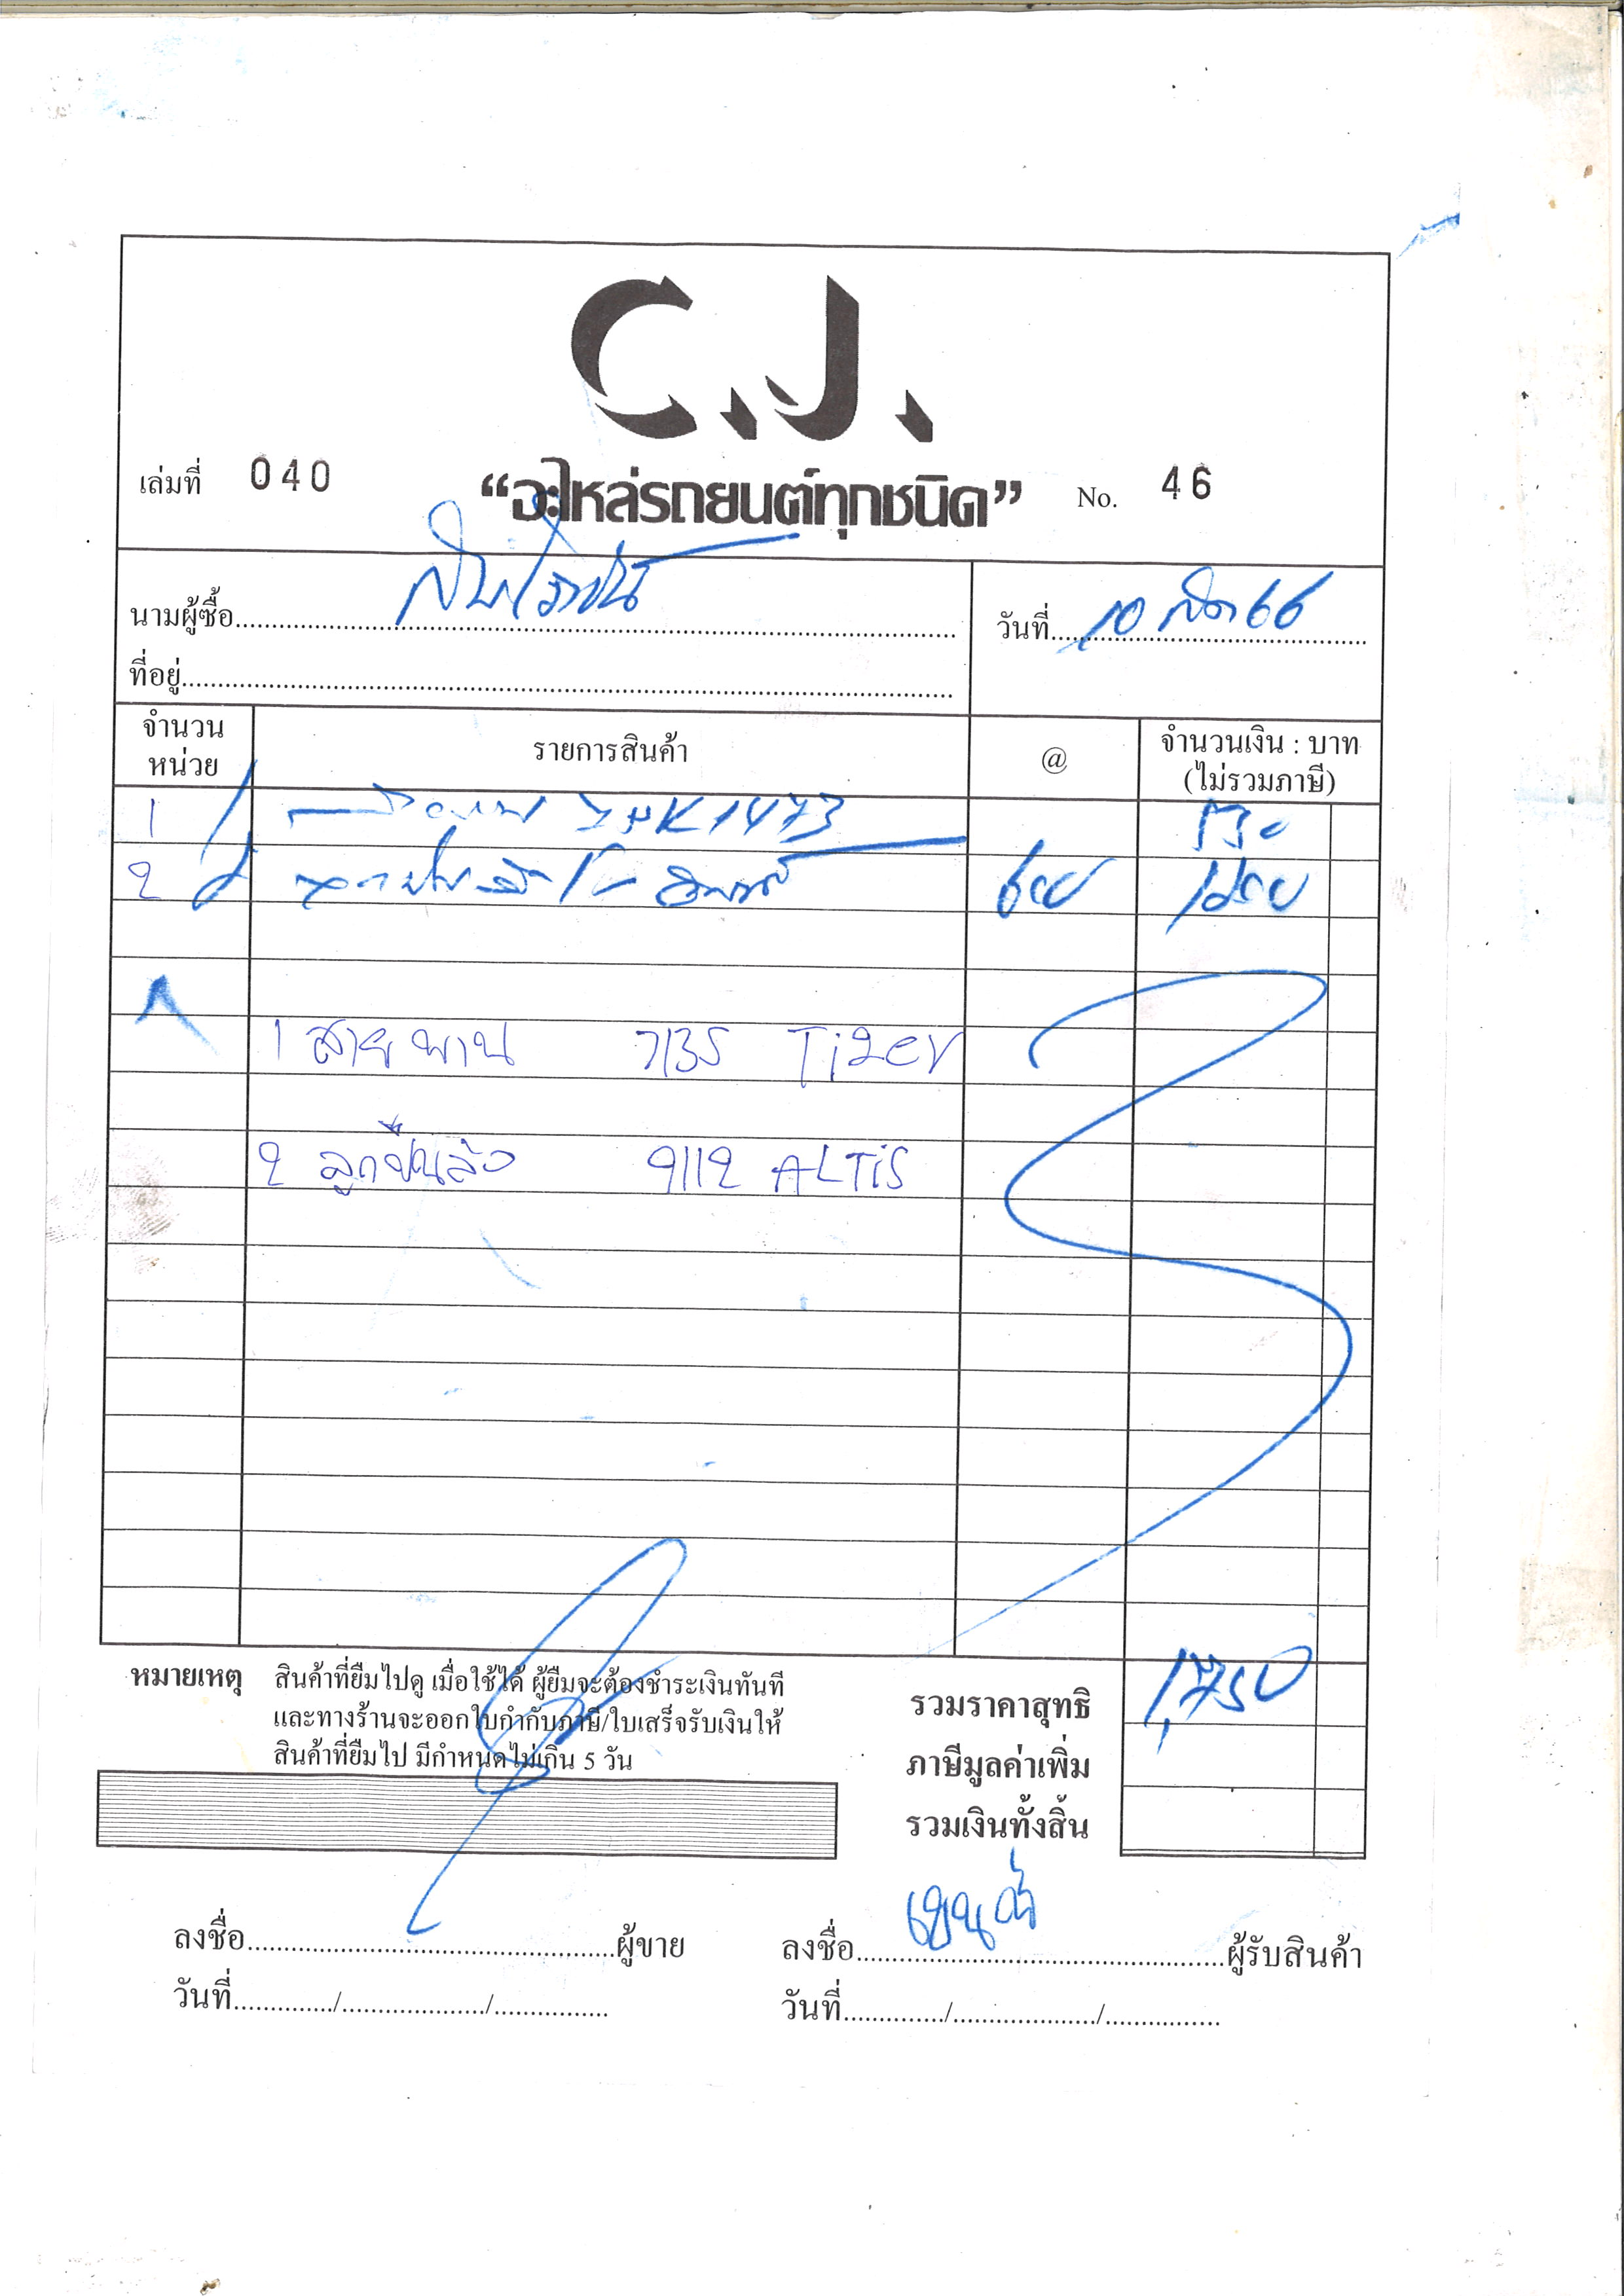 C.J.
เล่มที่ 040
“อะไหล่รถยนต์ทุกชนิด”
No. 46
นามผู้ซื้อ
วันที่ 10 66
ที่อยู่
จำนวน หน่วย รายการสินค้า @ จำนวนเงิน : บาท (ไม่รวมภาษี)
1 7PK1473
2
1 สายพาน 7135 Tiger
2 ลูกปืนล้อ 9112 ALTiS
หมายเหตุ สินค้าที่ยืมไปดู เมื่อใช้ได้ ผู้ยืมจะต้องชำระเงินทันที
และทางร้านจะออกใบกำกับภาษี/ใบเสร็จรับเงินให้
สินค้าที่ยืมไป มีกำหนดไม่เกิน 5 วัน
รวมราคาสุทธิ 1,750
ภาษีมูลค่าเพิ่ม
รวมเงินทั้งสิ้น
ลงชื่อ ผู้ขาย
ลงชื่อ ผู้รับสินค้า
วันที่ / /
วันที่ / /